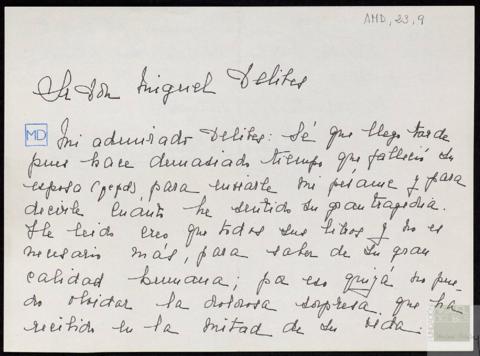 AMD, 23, 9
Sr Don Miguel Delibes
MD
Mi admirado Delibes: Sé que llego tarde
pues hace demasiado tiempo que falleció su
esposa para enviarle mi pésame y para
decirle cuánto he sentido su gran tragedia.
He leído creo que todos sus libros y no es
necesario más, para saber de su gran
calidad humana; por eso quizá no pue-
do olvidar la dolorosa sorpresa que ha
recibido en la mitad de su vida.